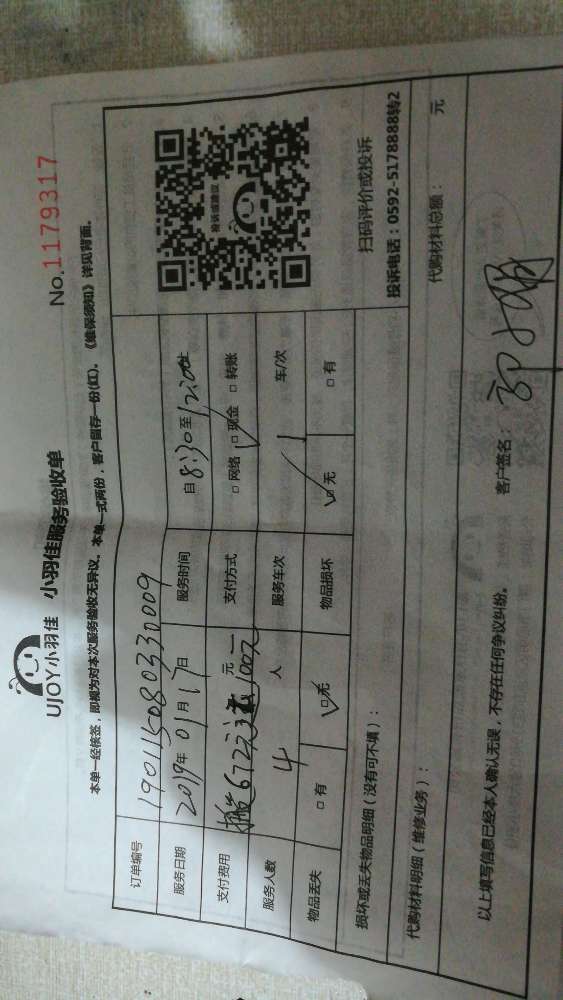 UJOY小羽佳 小羽佳服务验收单
No.1179317
本单一经核签，即视为对本次服务验收无异议。本单一式两份，客户留存一份(红)。《维保须知》详见背面。
订单编号 190115080330009
服务日期 2019年01月17日 服务时间 自8:30至12:00止
支付费用 元 支付方式 □网络 ☑现金 □转账
服务人数 4人 服务车次 1 车/次
物品丢失 □有 ☑无 物品损坏 ☑无 □有
投诉或建议
扫码评价或投诉
投诉电话：0592-5178888转2
损坏或丢失物品明细（没有可不填）：
代购材料明细（维修业务）：
代购材料总额： 元
以上填写信息已经本人确认无误，不存在任何争议纠纷。 客户签名：